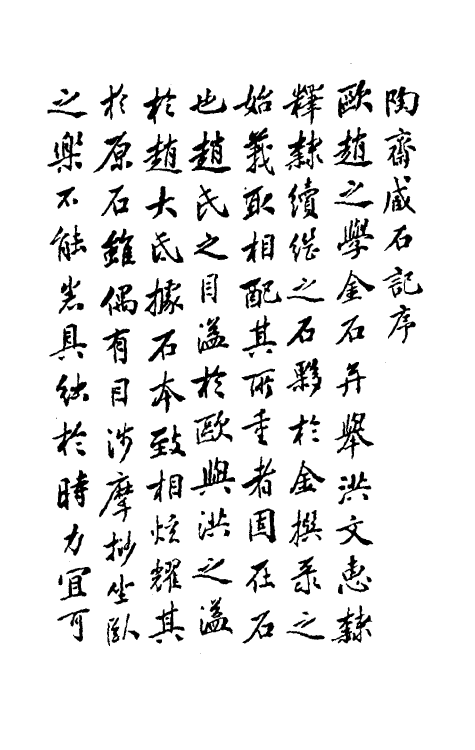 陶齋臧石記序
歐趙之學金石并舉洪文惠隸
釋隸續繼之石夥於金撰录之
始義取相配其所重者固在石
也趙氏之目溢於歐與洪之溢
於趙大氐據石本致相炫耀其
於原石雖偶有目涉摩挲坐臥
之樂不能悉具絀於時力宜可